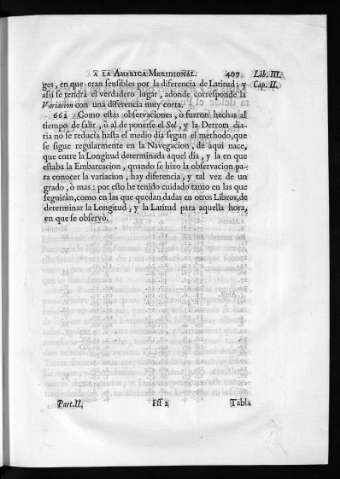 A LA AMERICA MERIDIONAL. 407 Lib. III.
ges, en que eran sensibles por la diferencia de Latitud; y Cap. II.
assi se tendrà el verdadero lugar, adonde corresponde la
Variacion con una diferencia muy corta.
662 Como estas observaciones, ò fueron hechas al
tiempo de salir, ò al de ponerse el Sol, y la Derrota dia-
ria no se reducia hasta el medio dia segun el methodo, que
se sigue regularmente en la Navegacion, de aqui nace,
que entre la Longitud determinada aquel dia, y la en que
estaba la Embarcacion, quando se hizo la observacion pa-
ra conocer la variacion, hay diferencia, y tal vez de un
grado, ò mas: por esto he tenido cuidado tanto en las que
seguiràn, como en las que quedan dadas en otros Libros, de
determinar la Longitud, y la Latitud para aquella hora,
en que se observò.
Part. II. Fff 2 Tabla